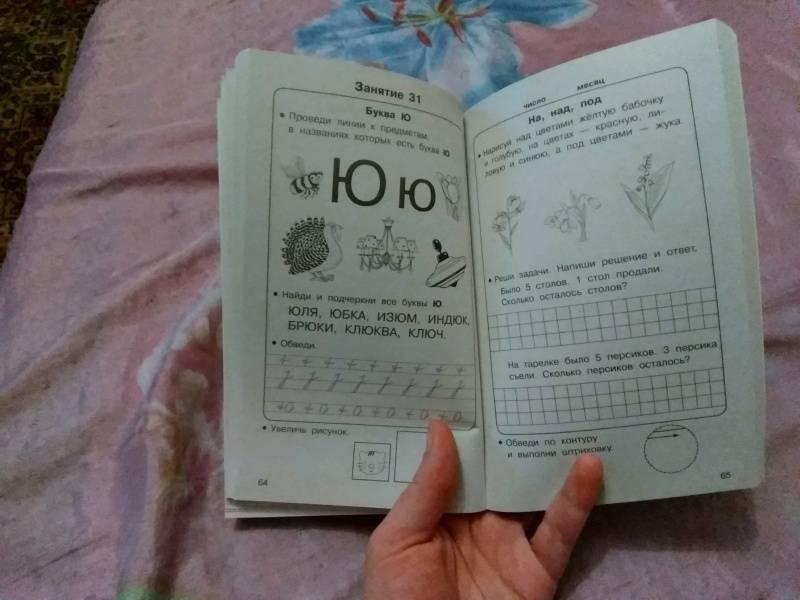 Занятие 31
Буква Ю
• Проведи линии к предметам,
в названиях которых есть буква Ю
Ю ю
• Найди и подчеркни все буквы Ю.
ЮЛЯ, ЮБКА, ИЗЮМ, ИНДЮК,
БРЮКИ, КЛЮКВА, КЛЮЧ.
• Обведи.
• Увеличь рисунок.
64
число месяц
На, над, под
• Нарисуй над цветами жёлтую бабочку
и голубую, на цветах — красную, ли-
ловую и синюю, а под цветами — жука.
• Реши задачи. Напиши решение и ответ.
Было 5 столов. 1 стол продали.
Сколько осталось столов?
На тарелке было 5 персиков. 3 персика
съели. Сколько персиков осталось?
• Обведи по контуру
и выполни штриховку.
65